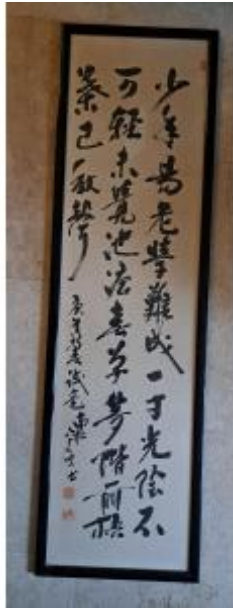 少年易老學難成一寸光陰不
可輕未覺池塘春草夢階前梧
葉已秋聲